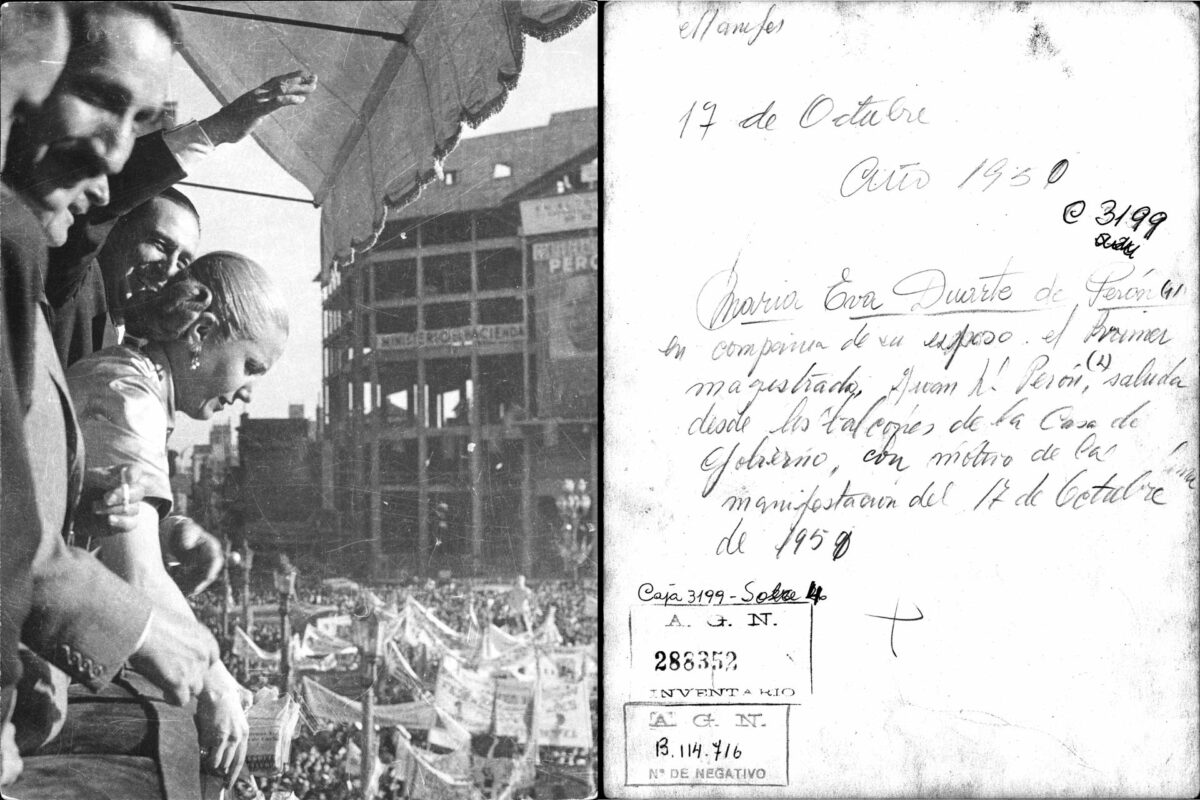 MINISTERIO DE HACIENDA
PERO
17 de Octubre
Año 1950
C 3199
Maria Eva Duarte de Perón (1)
en compania de su esposo el Primer
magistrado, Juan D. Perón, (2) saluda
desde los balcones de la Casa de
Gobierno, con motivo de la
manifestación del 17 de Octubre
de 1950
Caja 3199 - Sobre 4
A. G. N.
288352
INVENTARIO
A. G. N.
B.114.716
N° DE NEGATIVO